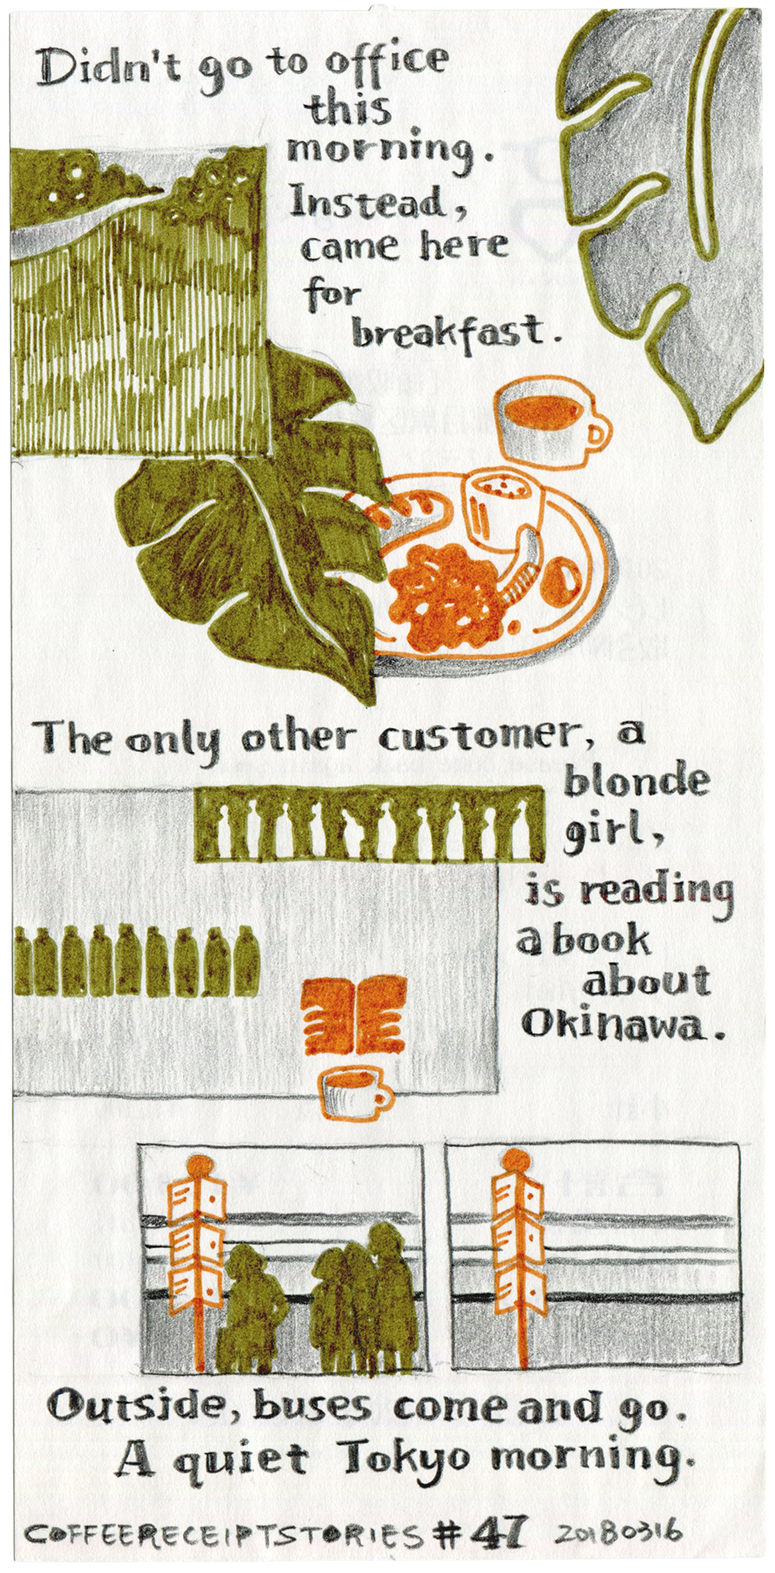 Didn't go to office
this
morning.
Instead,
came here
for
breakfast.
The only other customer, a
blonde
girl,
is reading
a book
about
Okinawa.
Outside, buses come and go.
A quiet Tokyo morning.
COFFEERECEIPTSTORIES #47 20180316